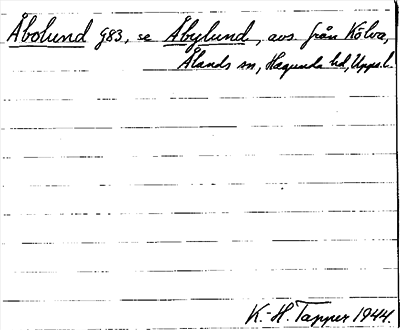 Åbolund g83, se Åbylund, avs. från Kölva,
Ålands sn, Hagunda hd, Upps. l.
K.-H. Tapper 1944.